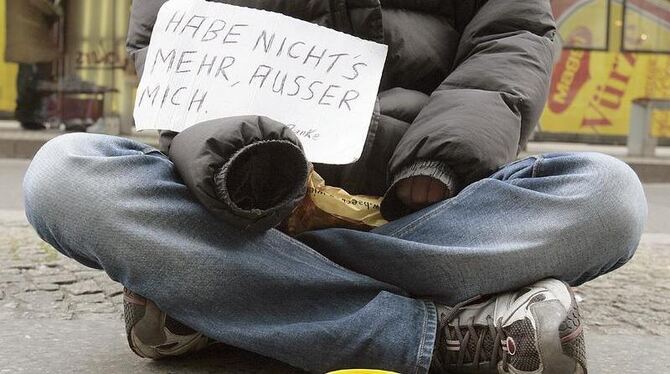 HABE NICHT'S
MEHR, AUSSER
MICH.
Danke
Maggi
Würz